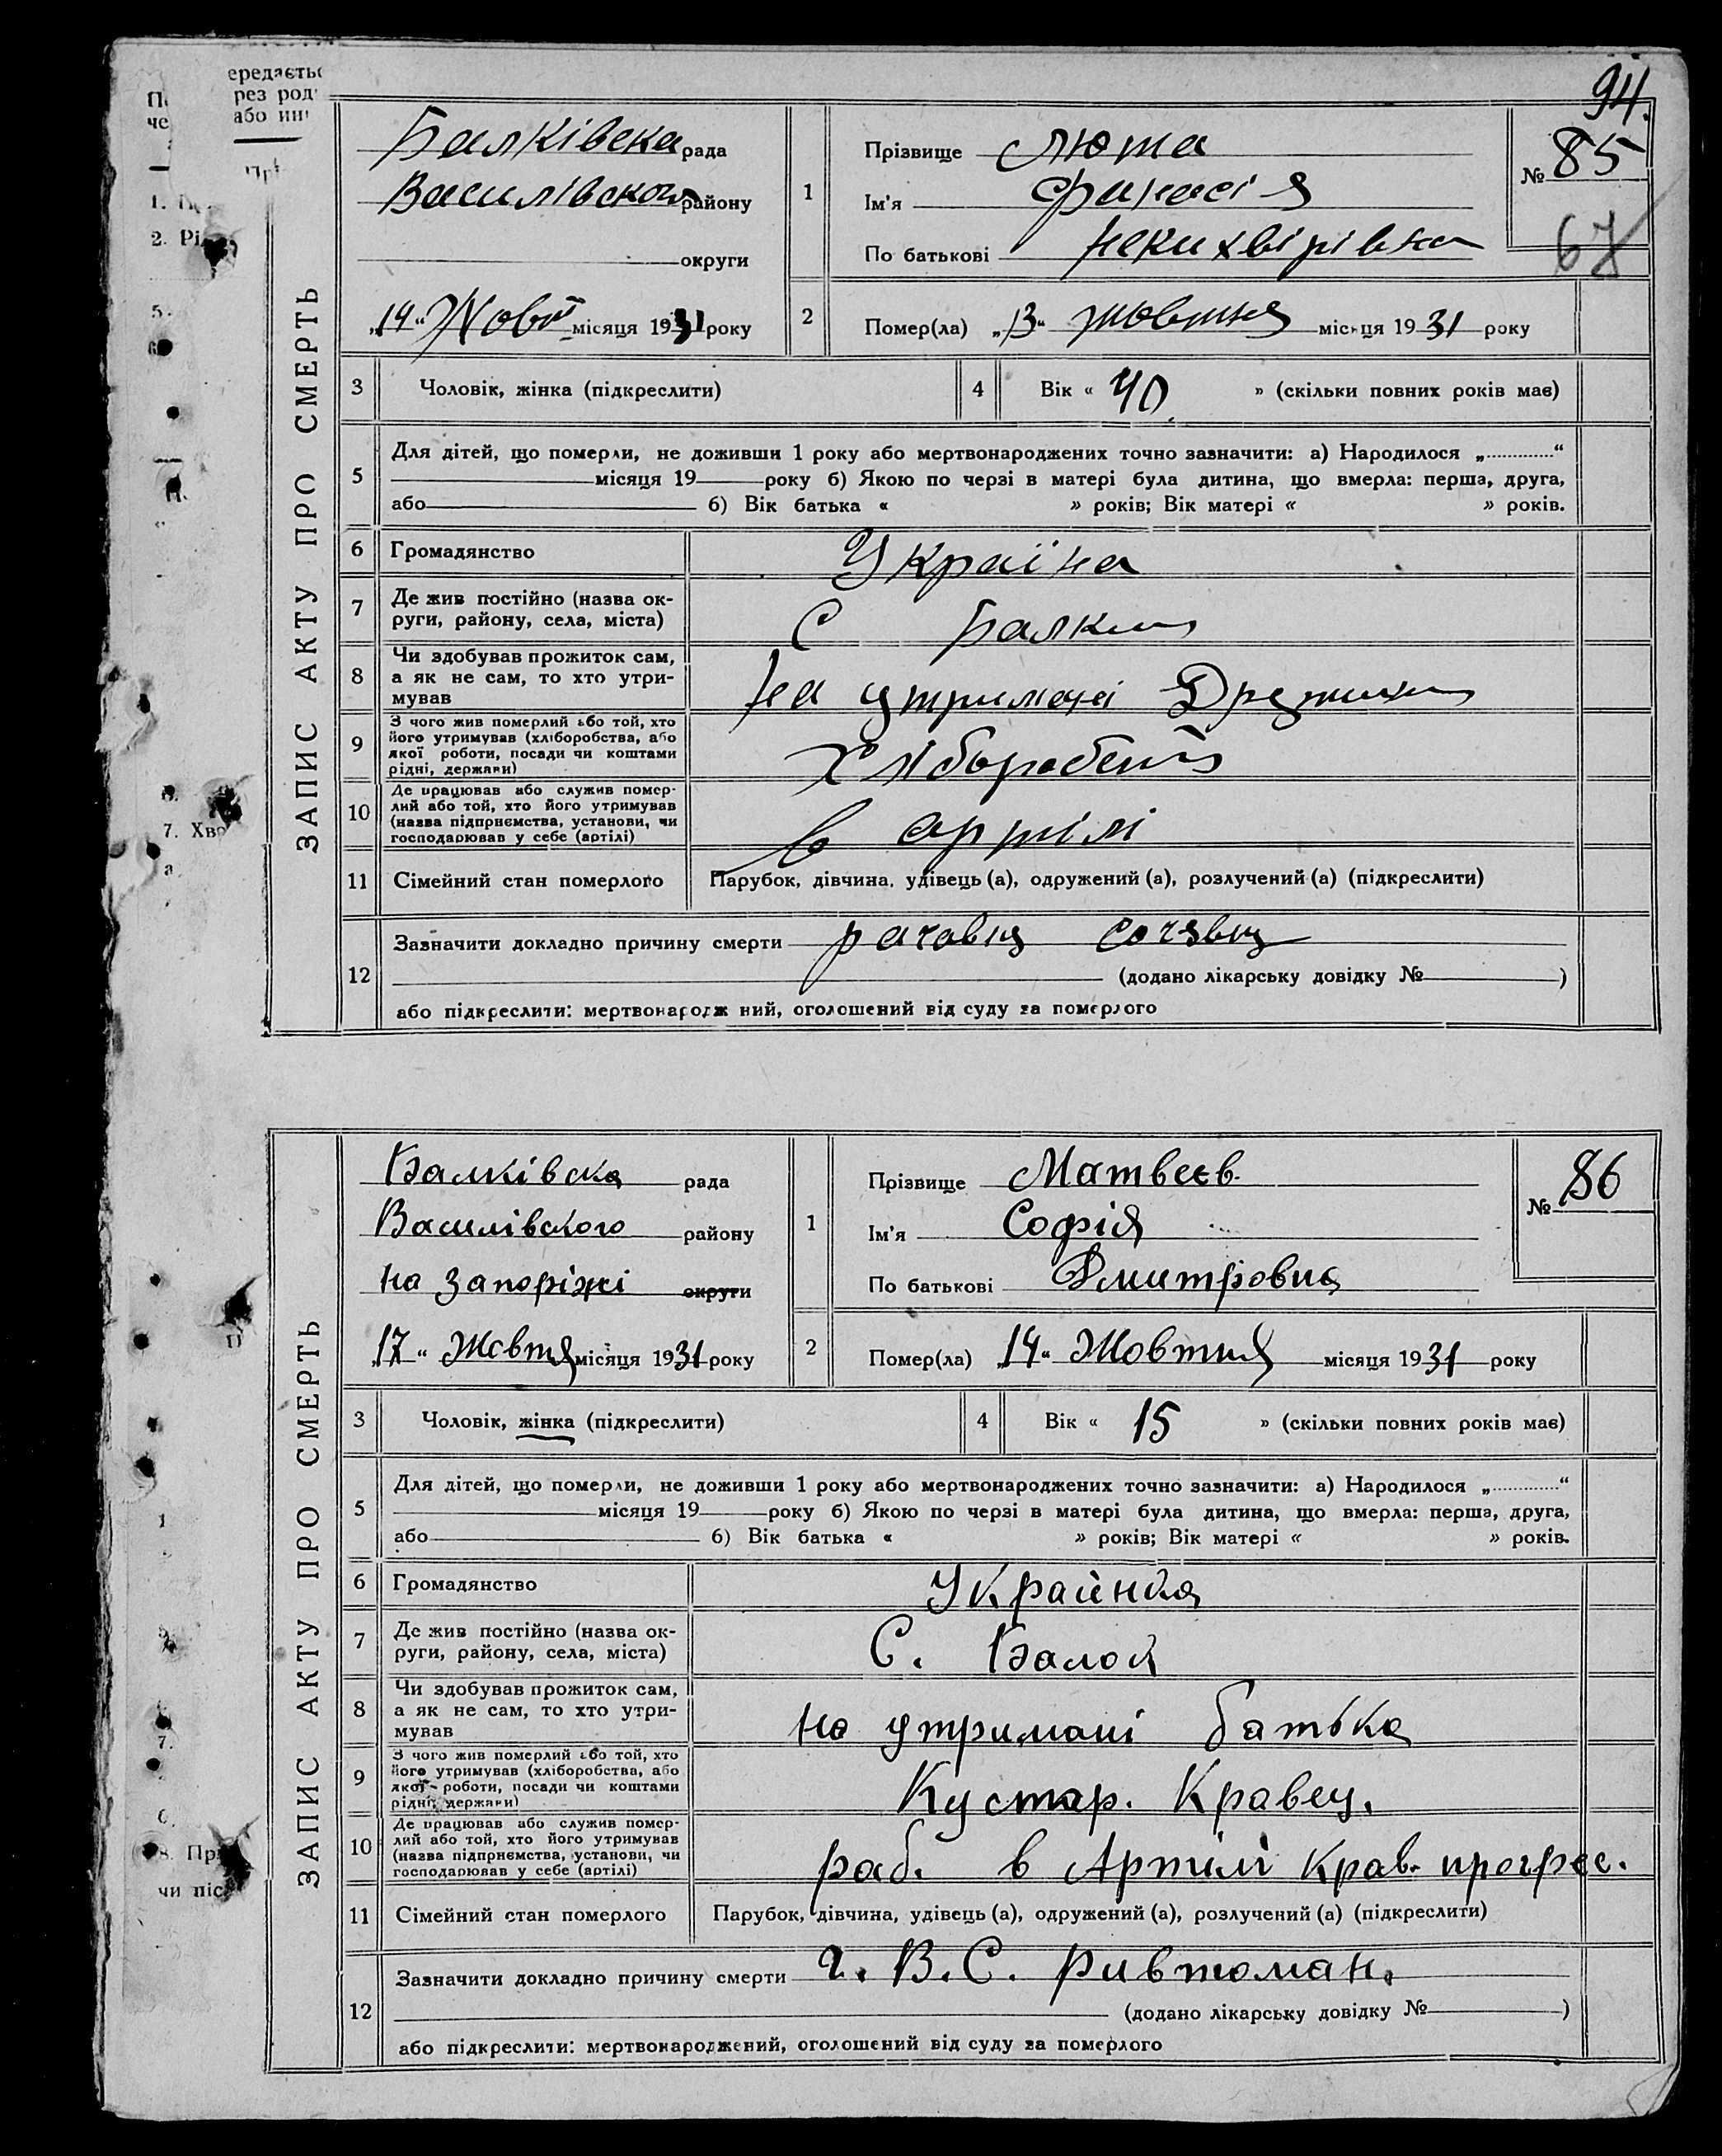 94.
ередаєть
рез род
або ин
че
2. Рі
7. Хво
8. Пр
чи піс
ЗАПИС АКТУ ПРО СМЕРТЬ
Балківська рада
Василівського району
округи
„14“ Жовт місяця 1931 року
1
Прізвище Люта
Ім'я
По батькові
№ 85
67
2
Помер(ла) „13“ жовтня місяця 1931 року
3 Чоловік, жінка (підкреслити)
4 Вік « 40 » (скільки повних років має)
5
Для дітей, що померли, не доживши 1 року або мертвонароджених точно зазначити: а) Народилося „............“
місяця 19 року б) Якою по черзі в матері була дитина, що вмерла: перша, друга,
або б) Вік батька « » років; Вік матері « » років.
6 Громадянство Україна
7 Де жив постійно (назва ок-
руги, району, села, міста) С Балки
8 Чи здобував прожиток сам,
а як не сам, то хто утри-
мував На утримані
9 З чого жив померлий або той, хто
його утримував (хліборобства, або
якої роботи, посади чи коштами
рідні, держави)
10 Де працював або служив помер-
лий або той, хто його утримував
(назва підприємства, установи, чи
господарював у себе (артілі) в артілі
11 Сімейний стан померлого Парубок, дівчина, удівець (а), одружений (а), розлучений (а) (підкреслити)
12
Зазначити докладно причину смерти
(додано лікарську довідку № )
або підкреслити: мертвонародж ний, оголошений від суду за померлого
ЗАПИС АКТУ ПРО СМЕРТЬ
Балківска рада
Василівского району
на Запоріжі округи
„17“ Жовтня місяця 1931 року
1
Прізвище Матвеєв.
Ім'я Софія
По батькові Дмитровна
№ 86
2
Помер(ла) „14“ Жовтня місяця 1931 року
3 Чоловік, жінка (підкреслити)
4 Вік « 15 » (скільки повних років має)
5
Для дітей, що померли, не доживши 1 року або мертвонароджених точно зазначити: а) Народилося „............“
місяця 19 року б) Якою по черзі в матері була дитина, що вмерла: перша, друга,
або б) Вік батька « » років; Вік матері « » років.
6 Громадянство
7 Де жив постійно (назва ок-
руги, району, села, міста) С.
8 Чи здобував прожиток сам,
а як не сам, то хто утри-
мував на утримані батька
9 З чого жив померлий або той, хто
його утримував (хліборобства, або
якої роботи, посади чи коштами
рідні, держави) Кустар. Кравец.
10 Де працював або служив помер-
лий або той, хто його утримував
(назва підприємства, установи, чи
господарював у себе (артілі) раб. в Артілі Крав. прогрес.
11 Сімейний стан померлого Парубок, дівчина, удівець (а), одружений (а), розлучений (а) (підкреслити)
12
Зазначити докладно причину смерти
(додано лікарську довідку № )
або підкреслити: мертвонароджений, оголошений від суду за померлого